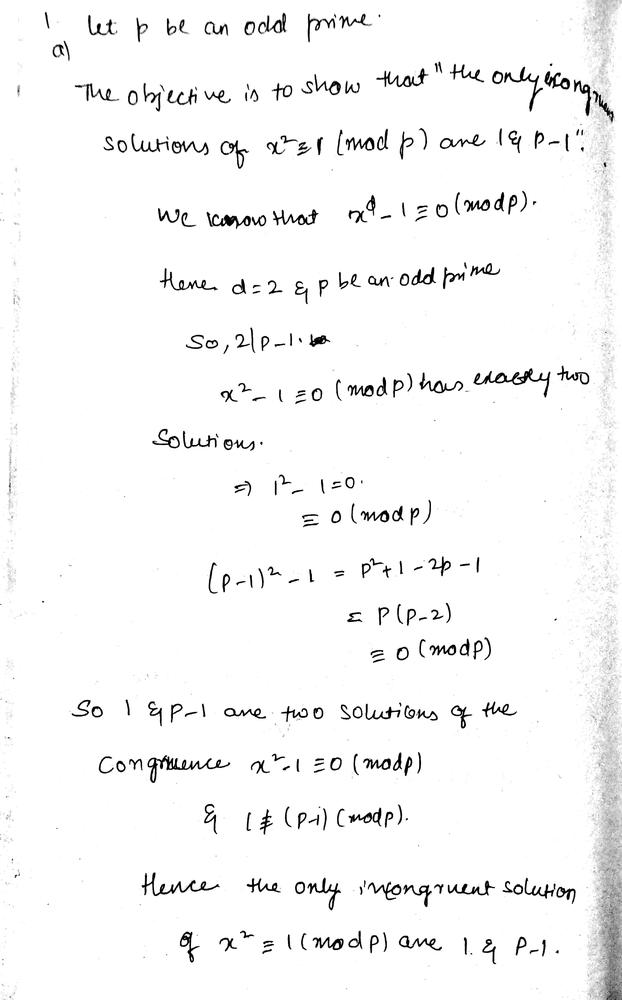 1 let p be an odd prime.
a)
The objective is to show that "the only incongruent
solutions of x² ≡ 1 (mod p) are 1 & P-1".
We know that x^d - 1 ≡ 0 (mod p).
Here d = 2 & p be an odd prime
So, 2|p-1.
x² - 1 ≡ 0 (mod p) has exactly two
Solutions.
⇒ 1² - 1 = 0.
≡ 0 (mod p)
(p-1)² - 1 = p² + 1 - 2p - 1
= P(p-2)
≡ 0 (mod p)
So 1 & P-1 are two solutions of the
Congruence x² - 1 ≡ 0 (mod p)
& 1 ≢ (p-1) (mod p).
Hence the only incongruent solution
of x² ≡ 1 (mod p) are 1. & P-1.